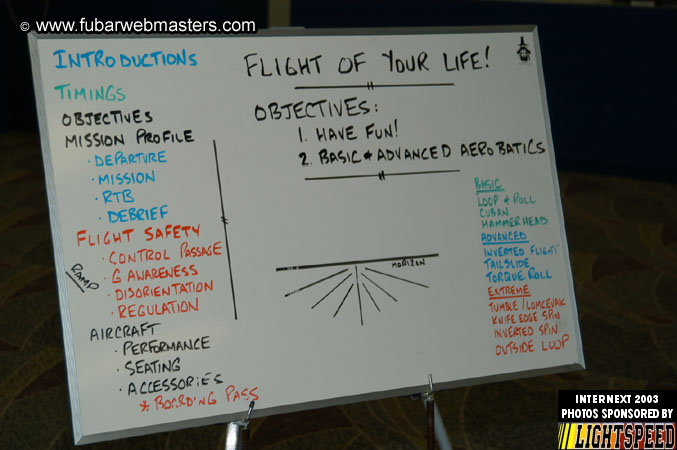 © www.fubarwebmasters.com
INTRODUCTIONS
TIMINGS
OBJECTIVES
MISSION PROFILE
· DEPARTURE
· MISSION
· RTB
· DEBRIEF
FLIGHT SAFETY
· CONTROL PASSAGE
· G AWARENESS
· DISORIENTATION
· REGULATION
RAMP
AIRCRAFT
· PERFORMANCE
· SEATING
· ACCESSORIES
* BOARDING PASS
FLIGHT OF YOUR LIFE!
OBJECTIVES:
1. HAVE FUN!
2. BASIC & ADVANCED AEROBATICS
HORIZON
BASIC
LOOP & ROLL
CUBAN
HAMMERHEAD
ADVANCED
INVERTED FLIGHT
TAILSLIDE
TORQUE ROLL
EXTREME
TUMBLE/LOMCEVAK
KNIFE EDGE SPIN
INVERTED SPIN
OUTSIDE LOOP
INTERNEXT 2003
PHOTOS SPONSORED BY
LIGHTSPEED